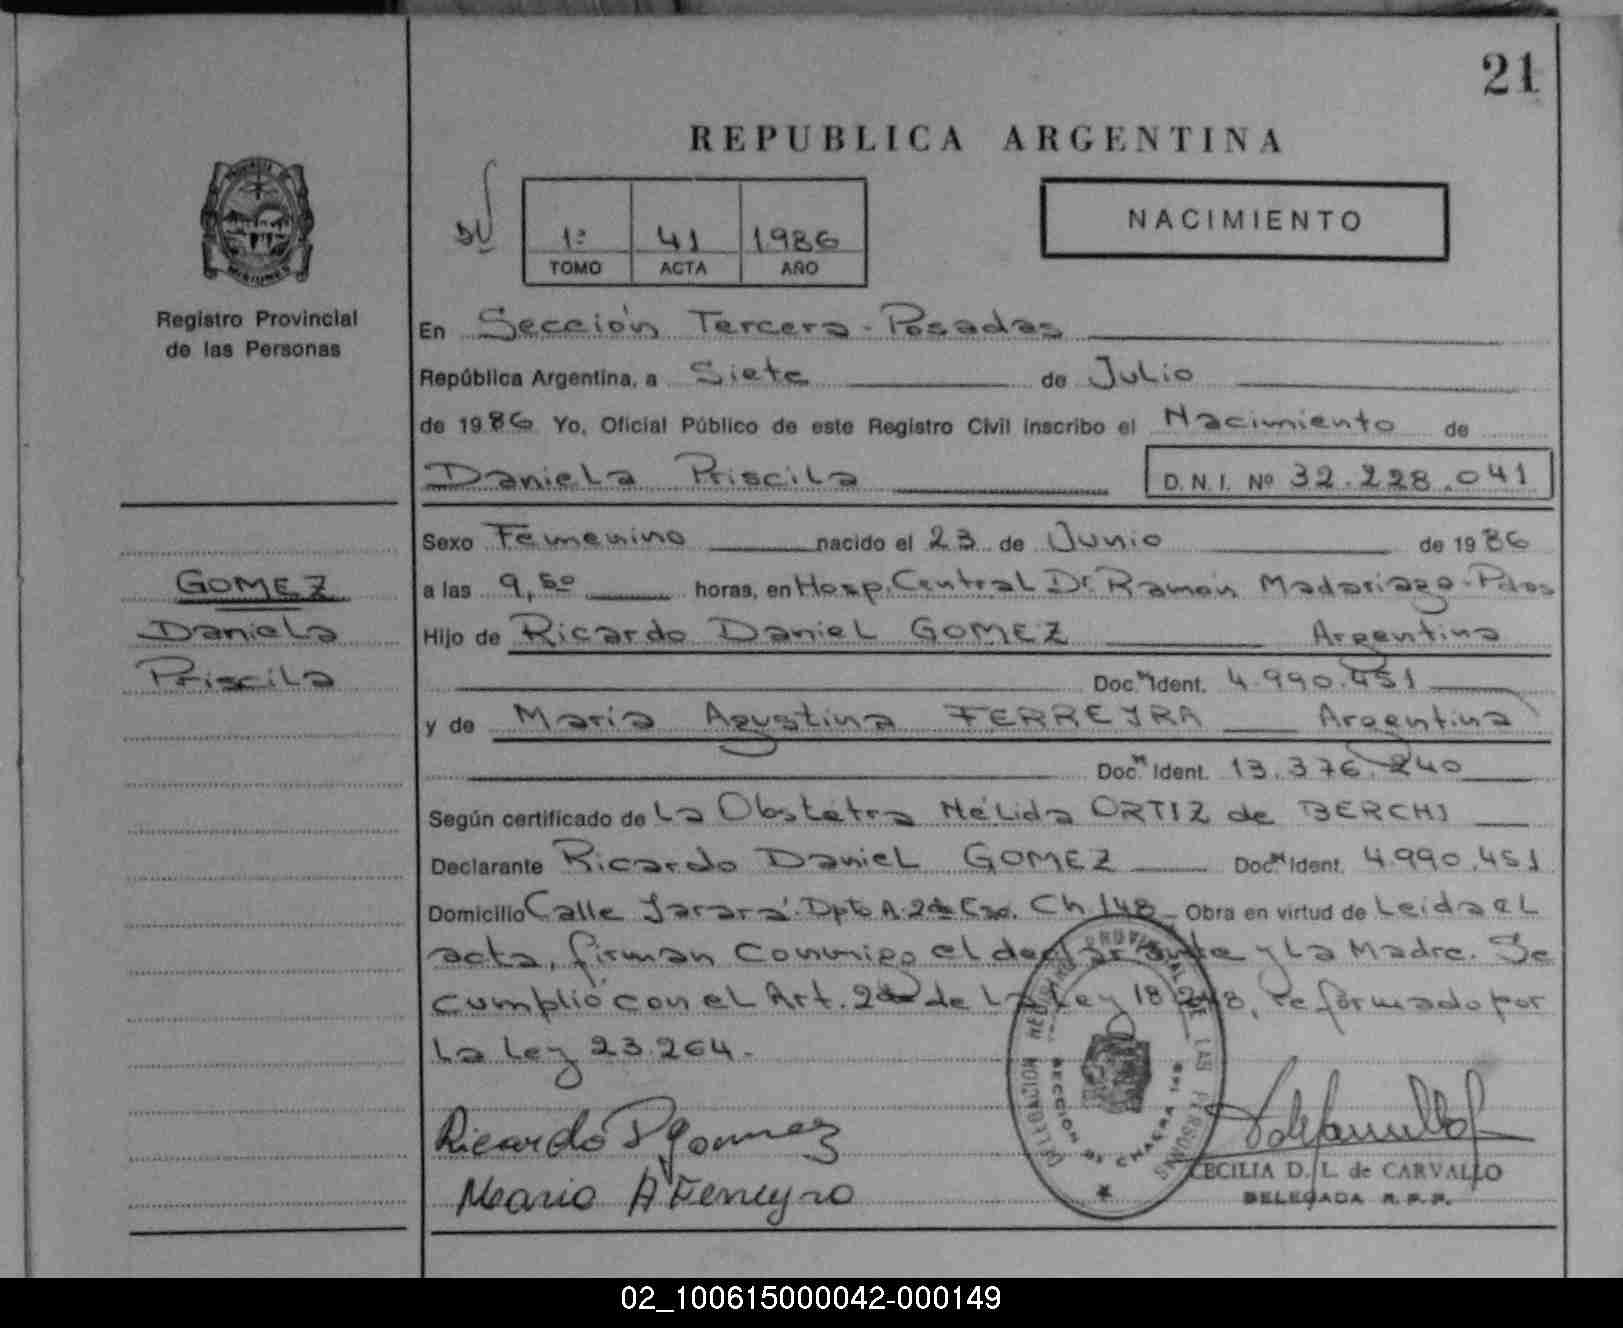 21
REPUBLICA ARGENTINA
PROVINCIA DE
MISIONES
Registro Provincial
de las Personas
1º 41 1986
TOMO ACTA AÑO
NACIMIENTO
En Sección Tercera - Posadas
República Argentina, a Siete de Julio
de 1986 Yo, Oficial Público de este Registro Civil inscribo el Nacimiento de
Daniela Priscila D. N. I. Nº 32.228.041
GOMEZ
Daniela
Priscila
Sexo Femenino nacido el 23 de Junio de 1986
a las 9,50 horas, en Hosp. Central Dr. Ramón Madariaga - Pdas
Hijo de Ricardo Daniel GOMEZ Argentina
Doc. Ident. 4.990.451
y de María Agustina FERREYRA Argentina
Doc. Ident. 13.376.240
Según certificado de La Obstétra Nélida ORTIZ de BERCHI
Declarante Ricardo Daniel GOMEZ Doc. Ident. 4.990.451
Domicilio Calle Jarará. Dpto A. Ch. 148 Obra en virtud de Leida el
acta, firman conmigo el declarante y La Madre. Se
cumplió con el Art. de La Ley 18.248, reformado por
La Ley 23.264.
DELEGACION REGISTRO PROVINCIAL DE LAS PERSONAS
SECCION 3ª CHACRA 148
Ricardo D Gomez
Maria A Ferreyra
CECILIA D. L. de CARVALLO
DELEGADA R. P. P.
02_100615000042-000149